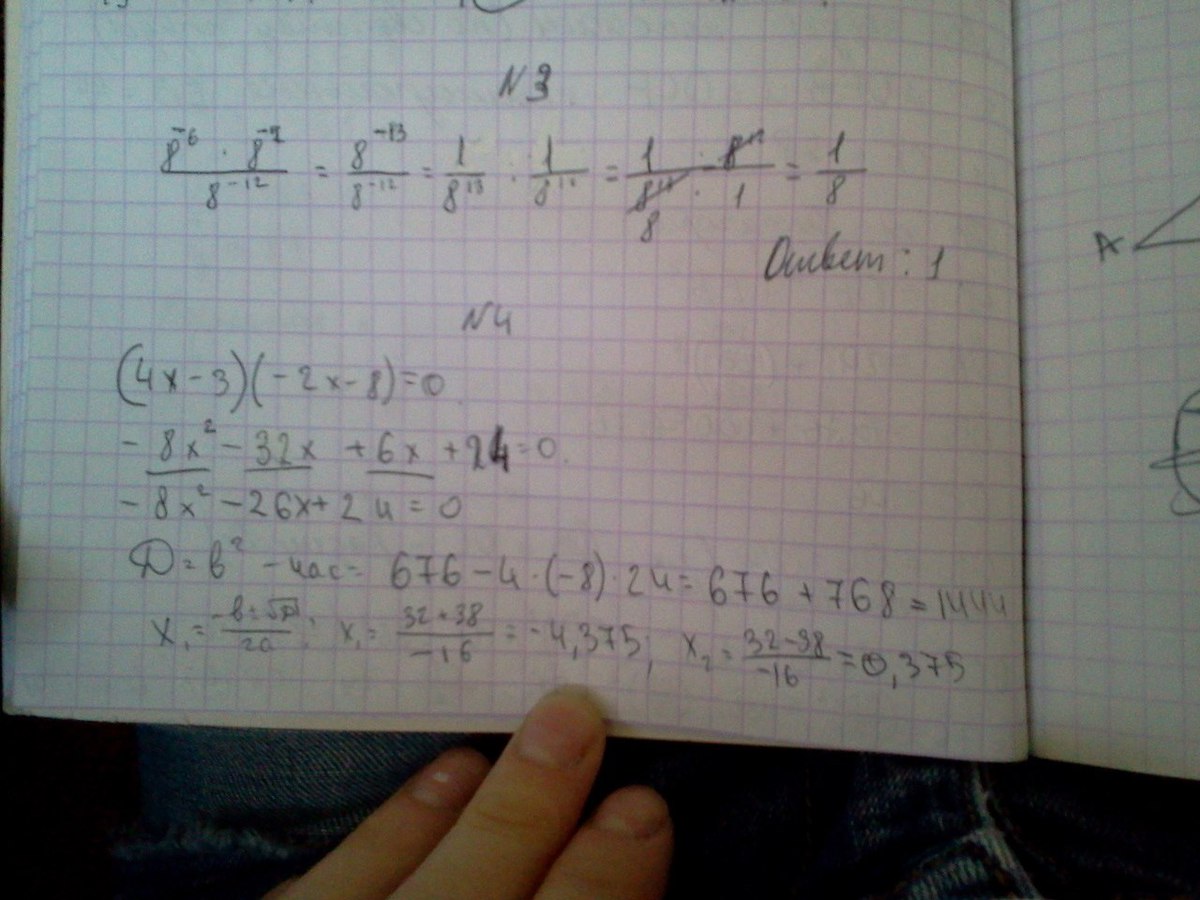 N 3
8^-6 · 8^-7 / 8^-12 = 8^-13 / 8^-12 = 1 / 8^13 : 1 / 8^12 = 1 / 8 · 1 = 1 / 8
Ответ: 1
N4
(4x-3)(-2x-8)=0
- 8x² - 32x + 6x + 24 = 0.
- 8x² - 26x + 24 = 0
D = b² - 4ac = 676 - 4 · (-8) · 24 = 676 + 768 = 1444
x₁ = -b ± √D / 2a ; x₁ = 32 + 38 / -16 = - 4,375 ; x₂ = 32 - 38 / -16 = 0,375
A